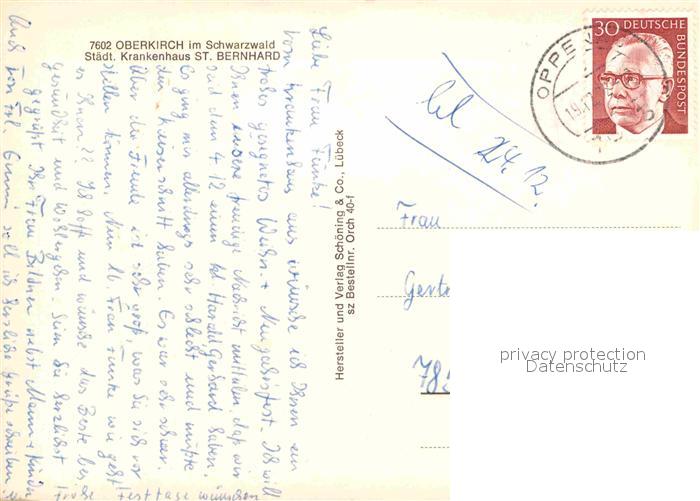 7602 OBERKIRCH im Schwarzwald
Städt. Krankenhaus ST. BERNHARD
Liebe Frau Funke!
Vom Krankenhaus aus wünsche ich Ihnen ein
frohes gesegnetes Weihn. + Neujahrsfest. Ich will
Ihnen unsere freudige Nachricht mitteilen, daß wir
seit dem 4.12 einen kl. Harald Gerhard haben.
Es ging mir allerdings sehr schlecht und mußte
den Kaiserschnitt haben. Es war sehr schwer.
Aber die Freude ist sehr groß, was Sie sich vor
stellen können. Nun lb. Frau Funke wie geht
es Ihnen?? Ich hoffe und wünsche das Beste bei
Gesundheit und Wohlergehen. Seien Sie herzlichst
gegrüßt Ihre Frau Bildner nebst Mann + Kind
Auch von Frl. Emmi soll ich herzliche Grüße schreiben u.
frohe Festtage wünschen
Hersteller und Verlag Schöning & Co., Lübeck
sz Bestellnr. Orch 40-f
24.12.
30 DEUTSCHE BUNDESPOST
OPPE
Frau
78
privacy protection
Datenschutz